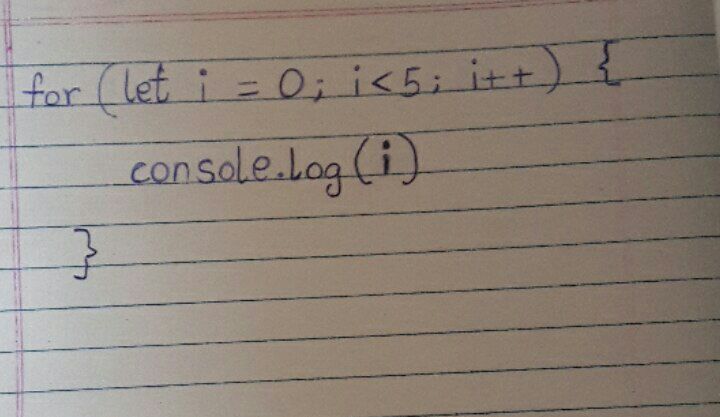 for (let i = 0; i<5; i++) {
console.log(i)
}